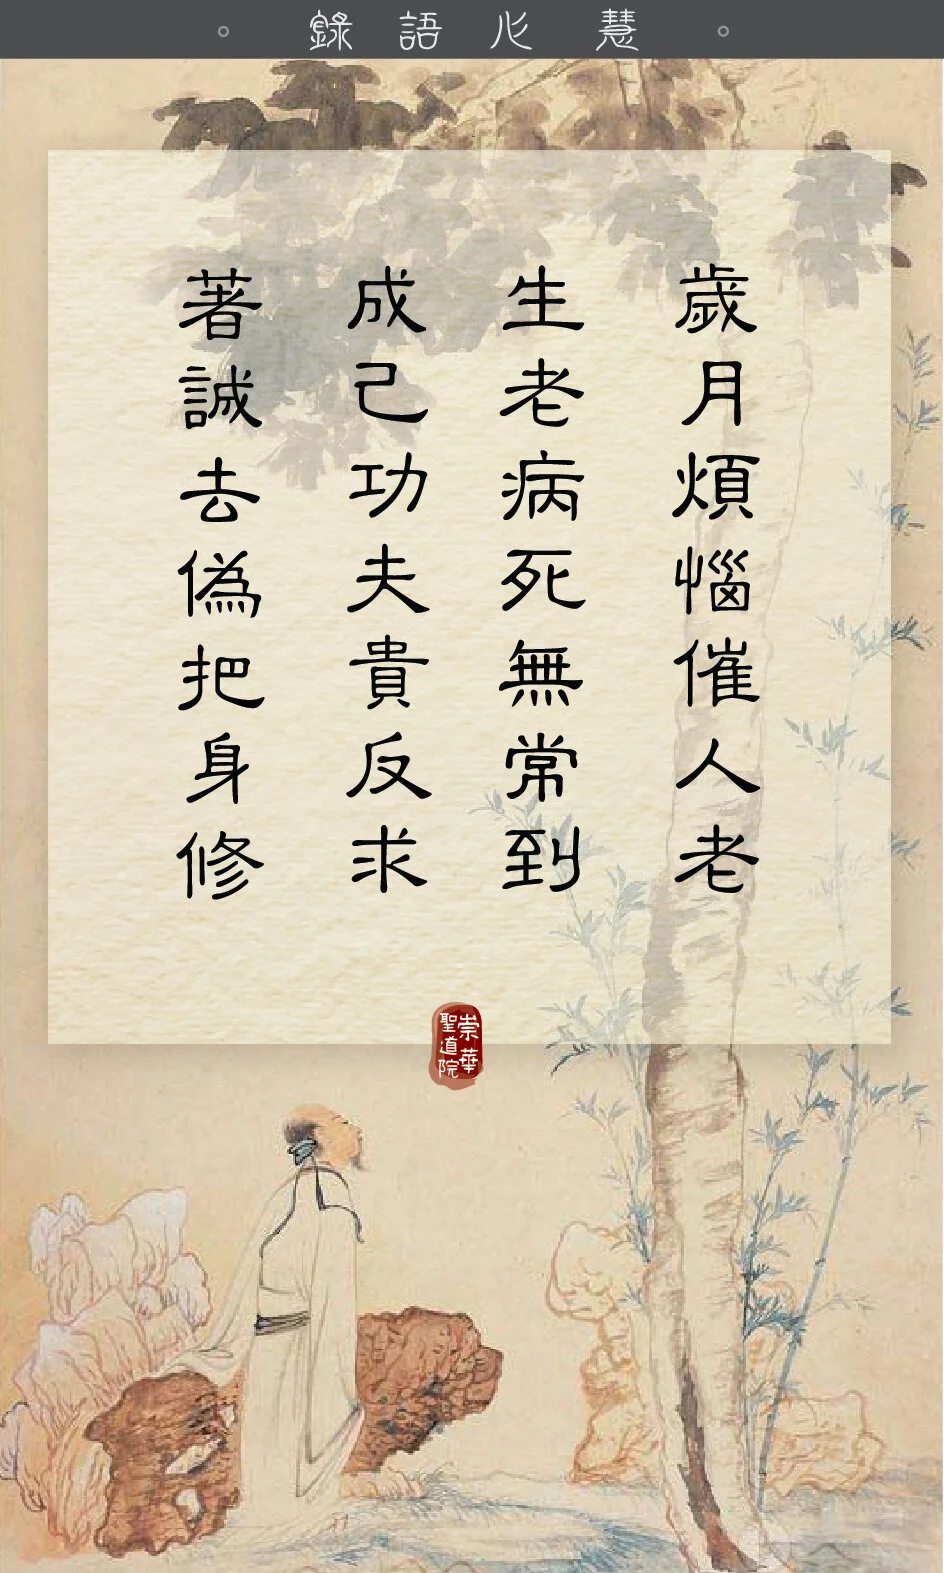 慧心語錄
歲月煩惱催人老
生老病死無常到
成己功夫貴反求
著誠去偽把身修
崇華
聖道院